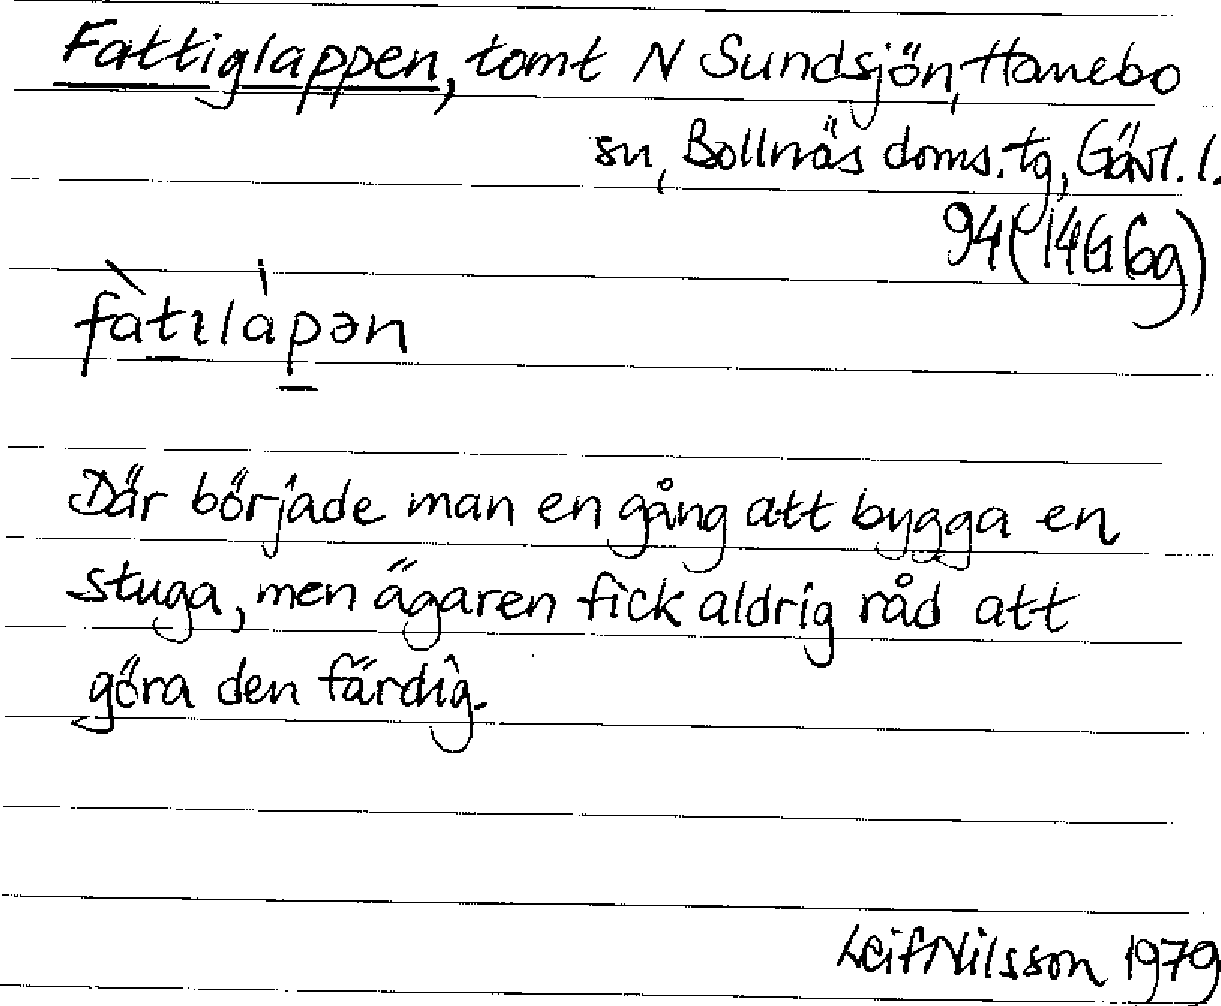 Fattiglappen, tomt N Sundsjön, Hanebo
sn, Bollnäs doms. tg, Gävl. l.
94 (14G 6g)
fàtɪlàpən
Där började man en gång att bygga en
stuga, men ägaren fick aldrig råd att
göra den färdig.
Leif Nilsson 1979